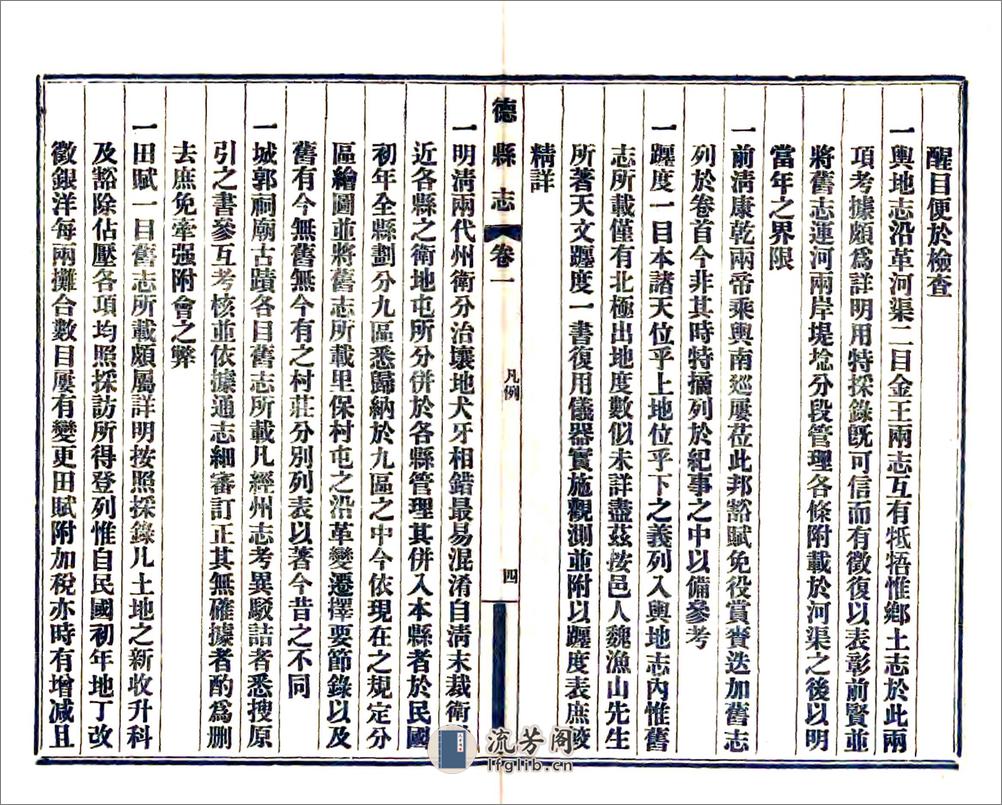 醒目便於檢查
一輿地志沿革河渠二目金王兩志互有牴牾惟鄉土志於此兩
項考據頗爲詳明用特採錄旣可信而有徵復以表彰前賢並
將舊志運河兩岸堤埝分段管理各條附載於河渠之後以明
當年之界限
一前淸康乾兩帝乘輿南巡屢莅此邦豁賦免役賞賚迭加舊志
列於卷首今非其時特摘列於紀事之中以備參考
一躔度一目本諸天位乎上地位乎下之義列入輿地志內惟舊
志所載僅有北極出地度數似未詳盡茲按邑人魏漁山先生
所著天文躔度一書復用儀器實施觀測並附以躔度表庶較
精詳
德縣志 卷一 凡例 四
一明淸兩代州衛分治壤地犬牙相錯最易混淆自淸末裁衛
近各縣之衛地屯所分併於各縣管理其併入本縣者於民國
初年全縣劃分九區悉歸納於九區之中今依現在之規定分
區繪圖並將舊志所載里保村屯之沿革變遷擇要節錄以及
舊有今無舊無今有之村莊分別列表以著今昔之不同
一城郭祠廟古蹟各目舊志所載凡經州志考異駁詰者悉搜原
引之書參互考核並依據通志細審訂正其無確據者酌爲删
去庶免牽强附會之弊
一田賦一目舊志所載頗屬詳明按照採錄凡土地之新收升科
及豁除佔壓各項均照採訪所得登列惟自民國初年地丁改
徵銀洋每兩攤合數目屢有變更田賦附加稅亦時有增減且
流芳阁
lfglib.cn